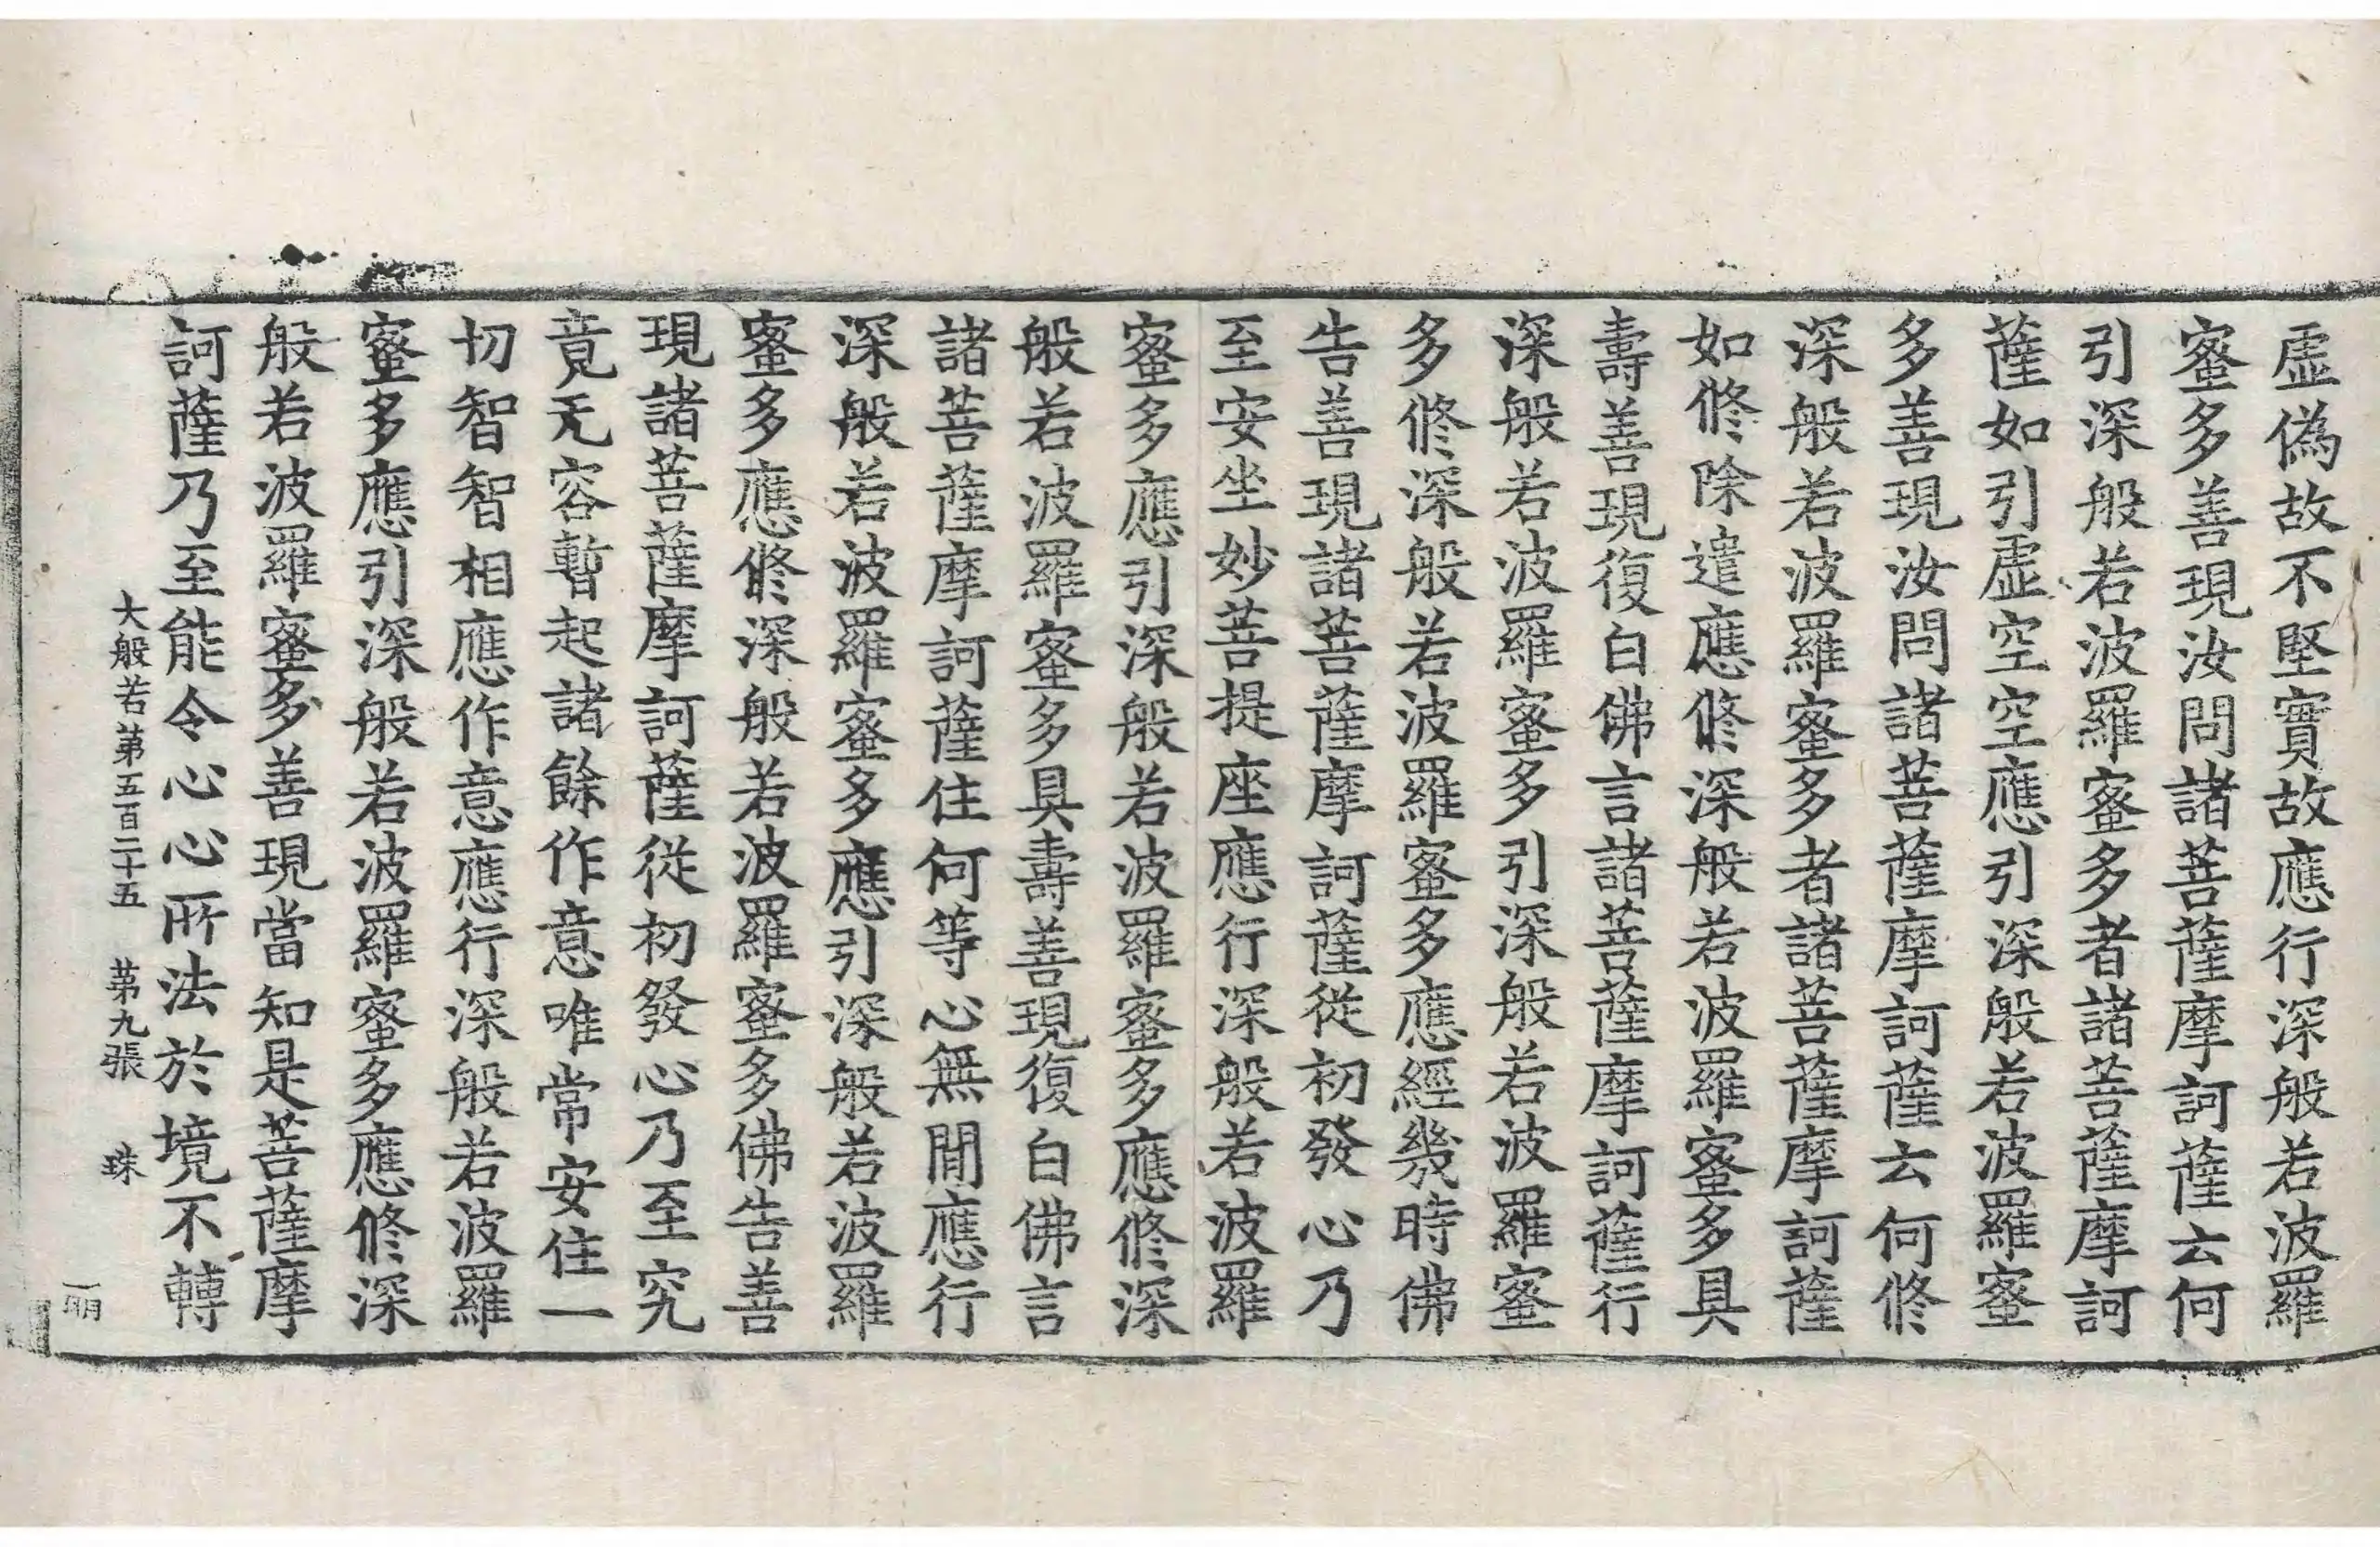 虛偽故不堅實故應行深般若波羅
蜜多善現汝問諸菩薩摩訶薩云何
引深般若波羅蜜多者諸菩薩摩訶
薩如引虛空空應引深般若波羅蜜
多善現汝問諸菩薩摩訶薩云何修
深般若波羅蜜多者諸菩薩摩訶薩
如修除遣應修深般若波羅蜜多具
壽善現復白佛言諸菩薩摩訶薩行
深般若波羅蜜多引深般若波羅蜜
多修深般若波羅蜜多應經幾時佛
告善現諸菩薩摩訶薩從初發心乃
至安坐妙菩提座應行深般若波羅
蜜多應引深般若波羅蜜多應修深
般若波羅蜜多具壽善現復白佛言
諸菩薩摩訶薩住何等心無間應行
深般若波羅蜜多應引深般若波羅
蜜多應修深般若波羅蜜多佛告善
現諸菩薩摩訶薩從初發心乃至究
竟无容暫起諸餘作意唯常安住一
切智智相應作意應行深般若波羅
蜜多應引深般若波羅蜜多應修深
般若波羅蜜多善現當知是菩薩摩
訶薩乃至能令心心所法於境不轉
大般若第五百二十五 第九張 珠
一明